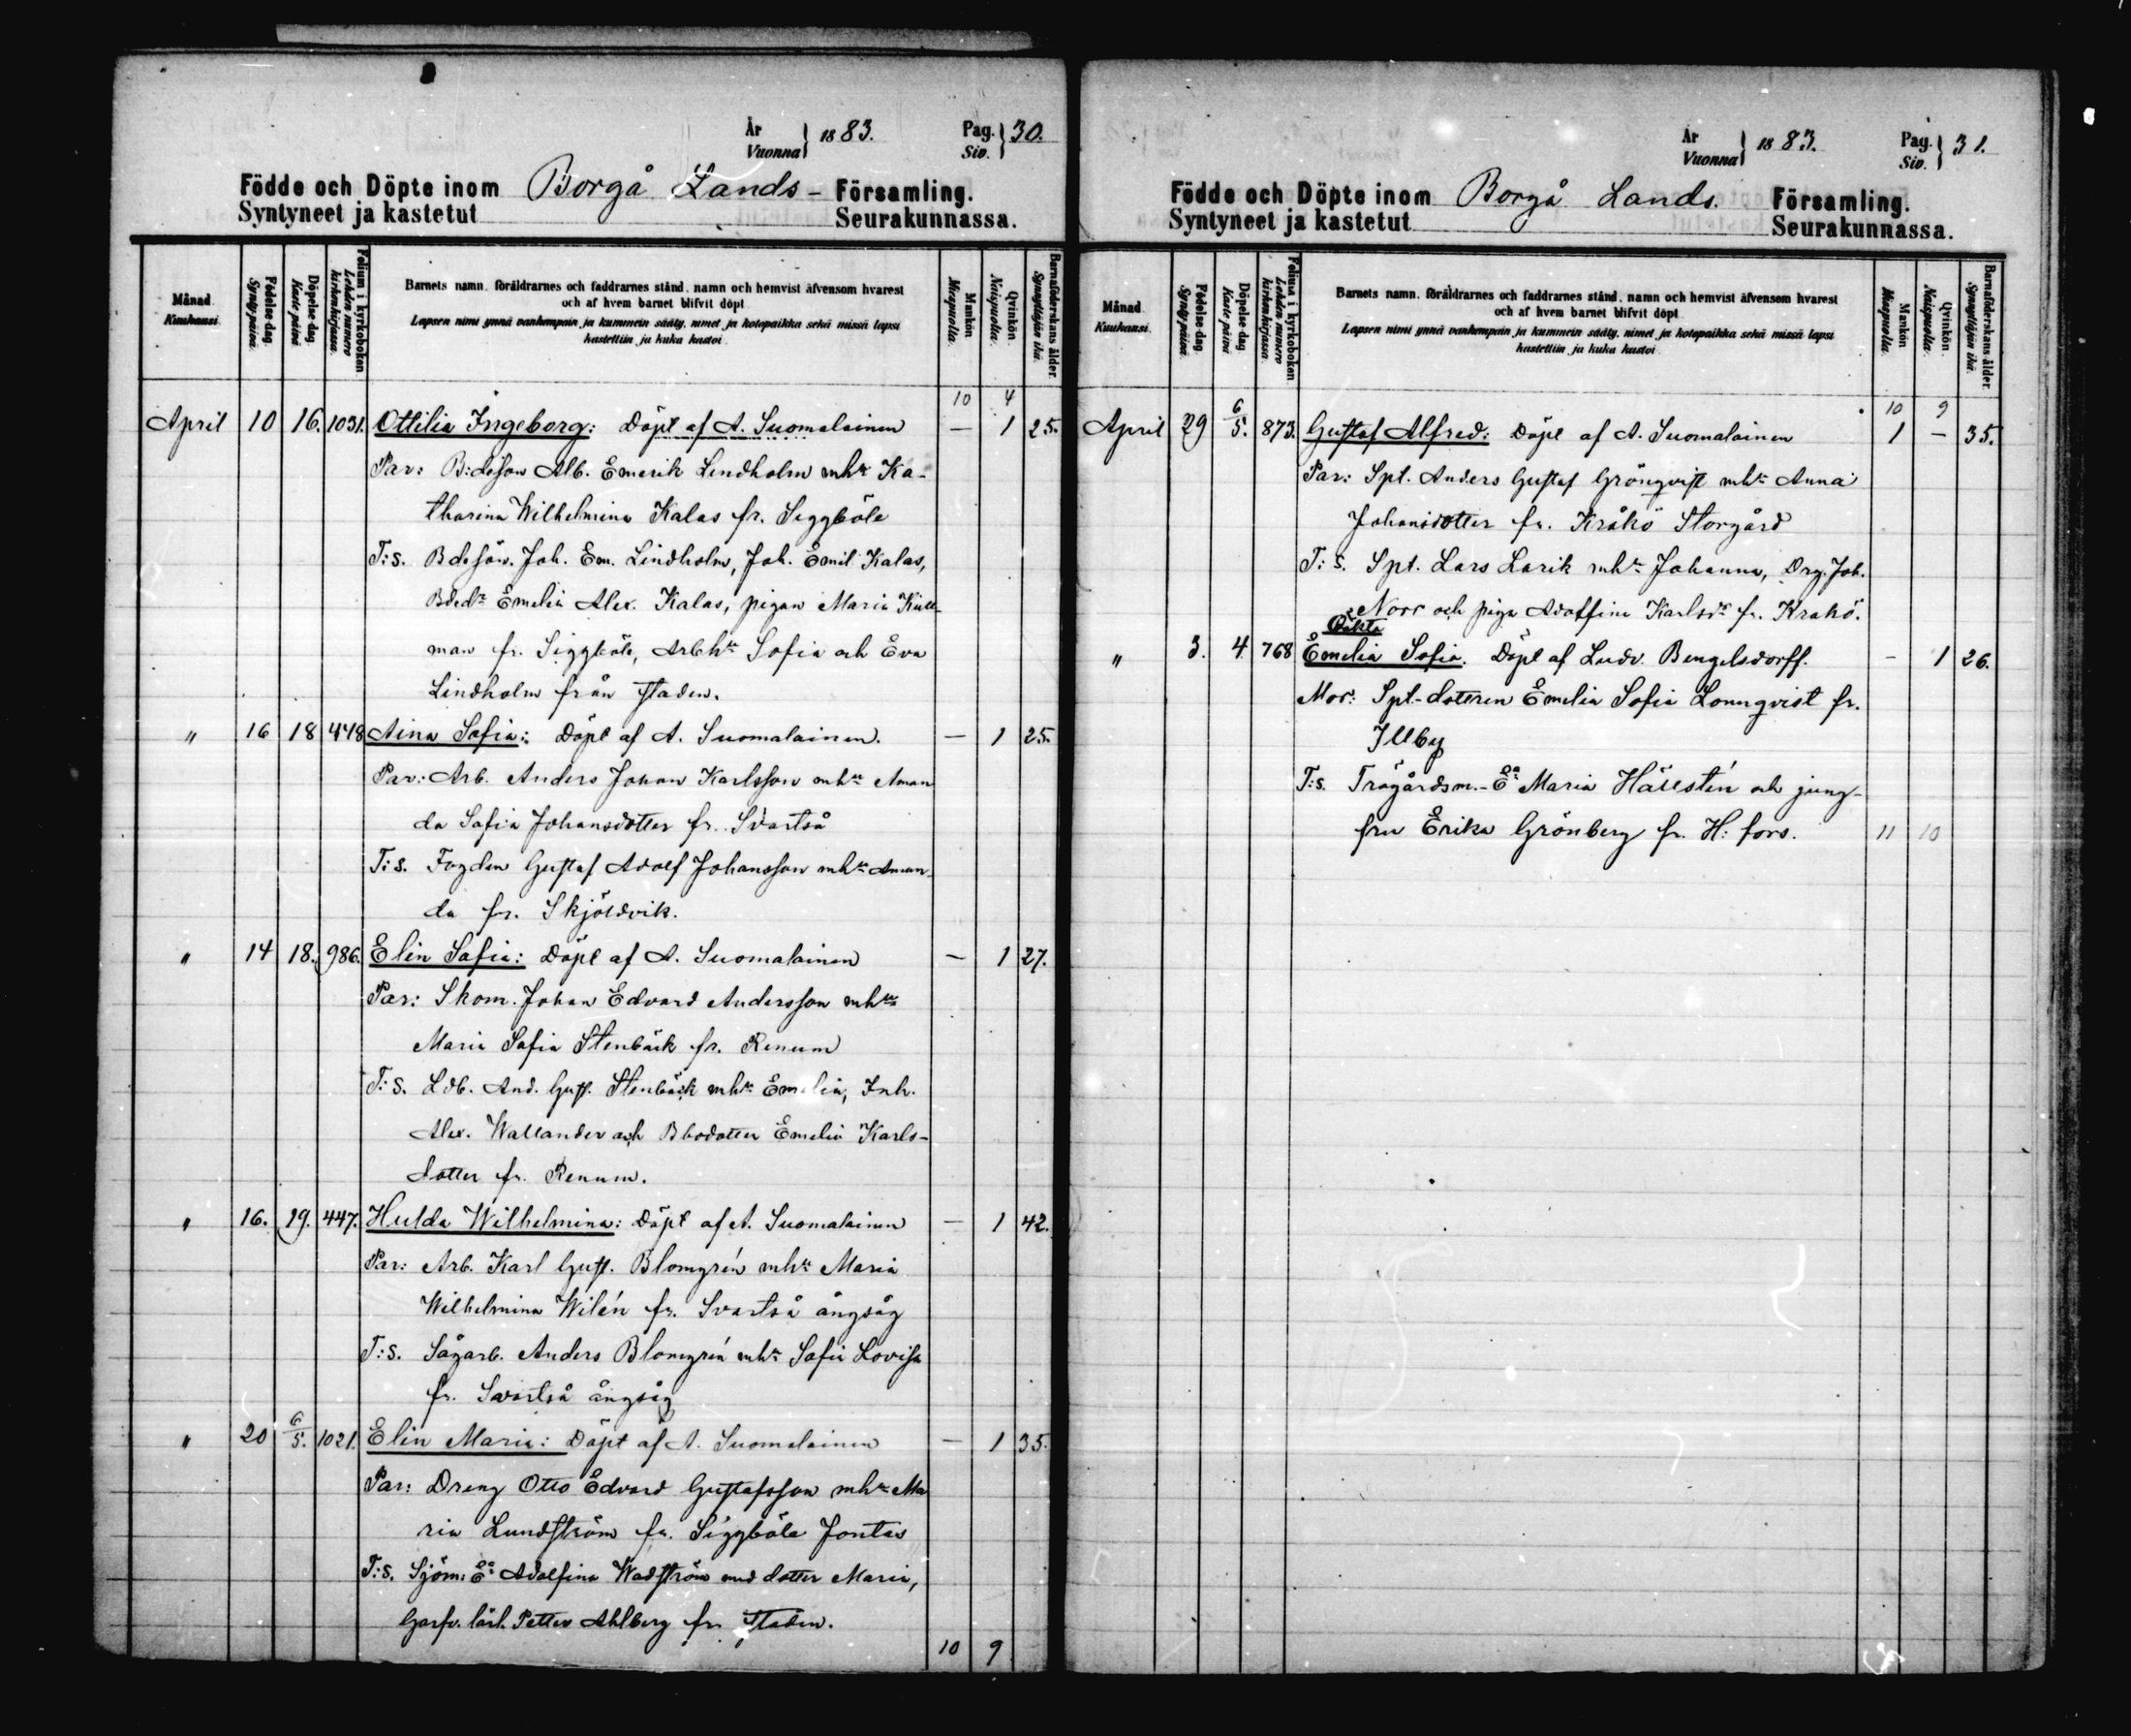 År
Vuonna } 1883. Pag.
Siv. } 30.
Födde och Döpte inom Borgå Lands- Församling.
Syntyneet ja kastetut Seurakunnassa.
Månad Kuukausi.
Födelse dag. Synty päivä.
Döpelse dag. Kaste päivä
Folium i kyrkoboken Lehden numero kirkonkirjassa.
Barnets namn, föräldrarnes och faddrarnes stånd, namn och hemvist äfvensom hvarest
och af hvem barnet blifvit döpt
Lapsen nimi ynnä vanhempain ja kummein sääty, nimet ja kotopaikka sekä missä lapsi
kastettiin ja kuka kastoi.
Mankön Miespuolia.
Qvinkön. Naispuolia.
Barnaföderskans ålder. Synnyttäjän ikä.
10 4
April 10 16. 1031. Ottilia Ingeborg: Döpt af A. Suomalainen — 1 25.
Par: B:deson Alb. Emerik Lindholm mhu Ka-
tharina Wilhelmina Kalas fr. Siggböle
T:s. Bdesön. Joh. Em. Lindholm, Joh. Emil Kalas,
Bdedr Emelia Alex. Kalas, pigan Maria Kull-
man fr. Siggböle, Arbhu Sofia och Eva
Lindholm från staden.
" 16 18 448 Aina Sofia: Döpt af A. Suomalainen. — 1 25.
Par: Arb. Anders Johan Karlsson mhu Aman
da Sofia Johansdotter fr. Svartså
T:s. Fogden Gustaf Adolf Johansson mhu Aman-
da fr. Skjöldvik.
" 14 18. 986. Elin Sofia: Döpt af A. Suomalainen — 1 27.
Par: Skom. Johan Edvard Andersson mhu
Maria Sofia Stenbäck fr. Renum
T:s. Ldb. And. Gust. Stenbäck mhu Emelia, Inh.
Alex. Wallander och Bbodotter Emelia Karls-
dotter fr. Renum.
" 16. 19. 447. Hulda Wilhelmina: Döpt af A. Suomalainen — 1 42.
Par: Arb. Karl Gust. Blomgrén mhu Maria
Wilhelmina Wilén fr. Svartså ångsåg
T:s. Sågarb. Anders Blomgrén mhu Sofia Lovisa
fr. Svartså ångsåg
" 20 6/5. 1021. Elin Maria: Döpt af A. Suomalainen — 1 35.
Par: Dreng Otto Edvard Gustafsson mhu Ma
ria Lundström fr. Siggböle Jontas
T:s. Sjöm: Ea Adolfina Wadström med dotter Maria,
Garfv. lärl. Petter Ahlberg fr. staden.
10 9
År
Vuonna } 1883. Pag.
Siv. } 31.
Födde och Döpte inom Borgå Lands. Församling.
Syntyneet ja kastetut Seurakunnassa.
Månad Kuukausi.
Födelse dag. Synty päivä.
Döpelse dag. Kaste päivä
Folium i kyrkoboken Lehden numero kirkonkirjassa.
Barnets namn, föräldrarnes och faddrarnes stånd, namn och hemvist äfvensom hvarest
och af hvem barnet blifvit döpt
Lapsen nimi ynnä vanhempain ja kummein sääty, nimet ja kotopaikka sekä missä lapsi
kastettiin ja kuka kastoi
Mankön Miespuolia.
Qvinkön. Naispuolia.
Barnaföderskans ålder. Synnyttäjän ikä.
10 9
April 29 6/5. 873. Gustaf Alfred: Döpt af A. Suomalainen 1 — 35.
Par: Spt. Anders Gustaf Grönqvist mhu Anna
Johansdotter fr. Kråkö Storgård
T:s. Spt. Lars Larik mhu Johanna, Drg. Joh.
Norr och piga Adolfina Karlsdr fr. Krakö.
Oäkta
" 3. 4 768 Emelia Sofia. Döpt af Ludv. Bengelsdorff. — 1 26.
Mor: Spt-dottren Emelia Sofia Lönnqvist fr.
Illby
T:s. Trägårdsm.-Ea Maria Hällstén och jung-
fru Erika Grönberg fr. H:fors. 11 10